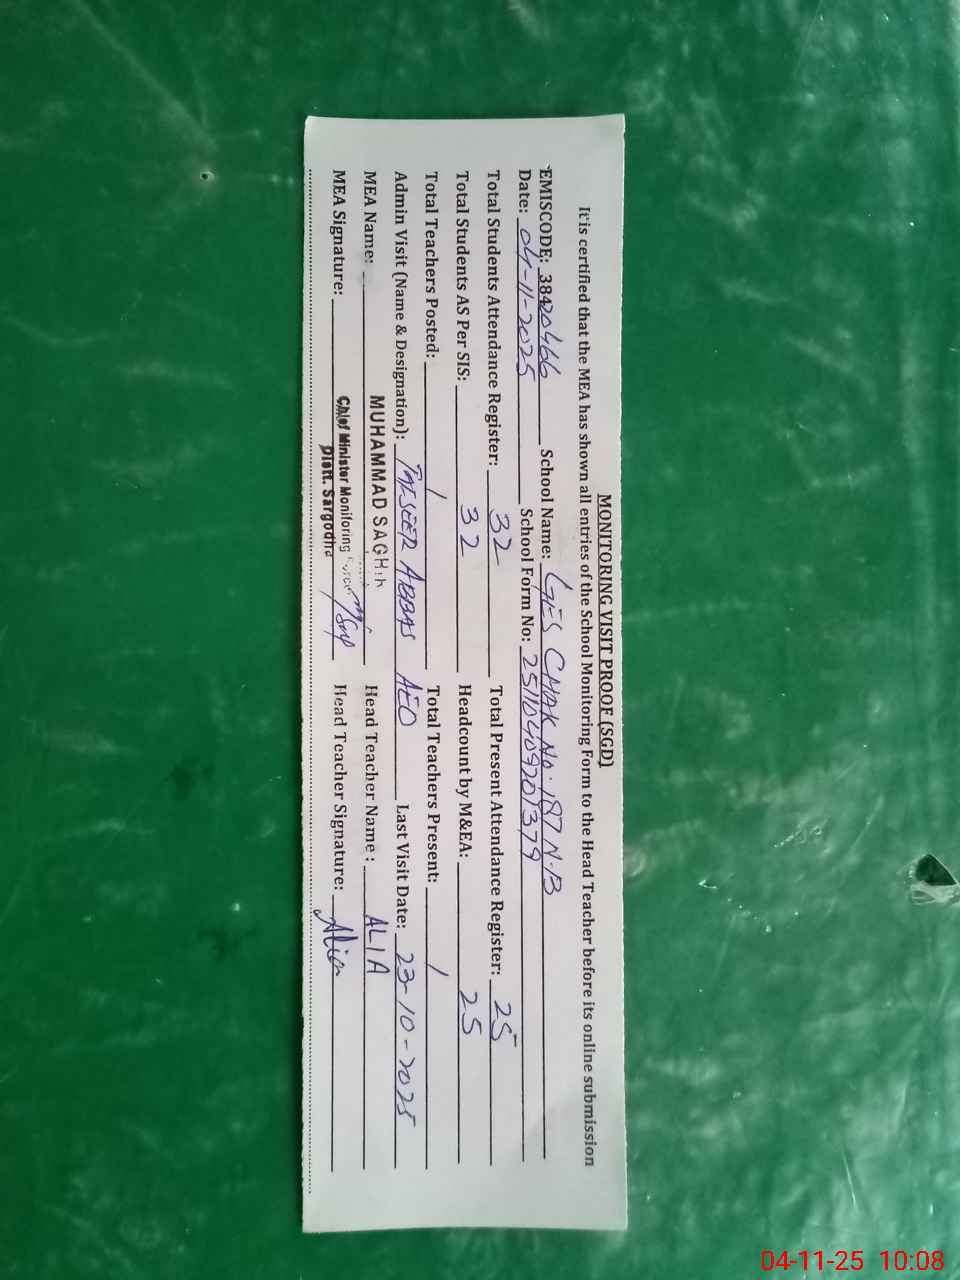 MONITORING VISIT PROOF (SGD)
It is certified that the MEA has shown all entries of the School Monitoring Form to the Head Teacher before its online submission
EMISCODE: 38420466 School Name: GES CHAK No. 187 N.B
Date: 04-11-2025 School Form No:
Total Students Attendance Register: 32 Total Present Attendance Register: 25
Total Students AS Per SIS: 32 Headcount by M&EA: 25
Total Teachers Posted: 1 Total Teachers Present: 1
Admin Visit (Name & Designation): TAFSEER ABBAS AEO Last Visit Date: 23-10-2025
MEA Name: MUHAMMAD SAGHIR Head Teacher Name : ALIA
MEA Signature: Chief Minister Monitoring Force Head Teacher Signature: Alia
Distt. Sargodha
04-11-25 10:08